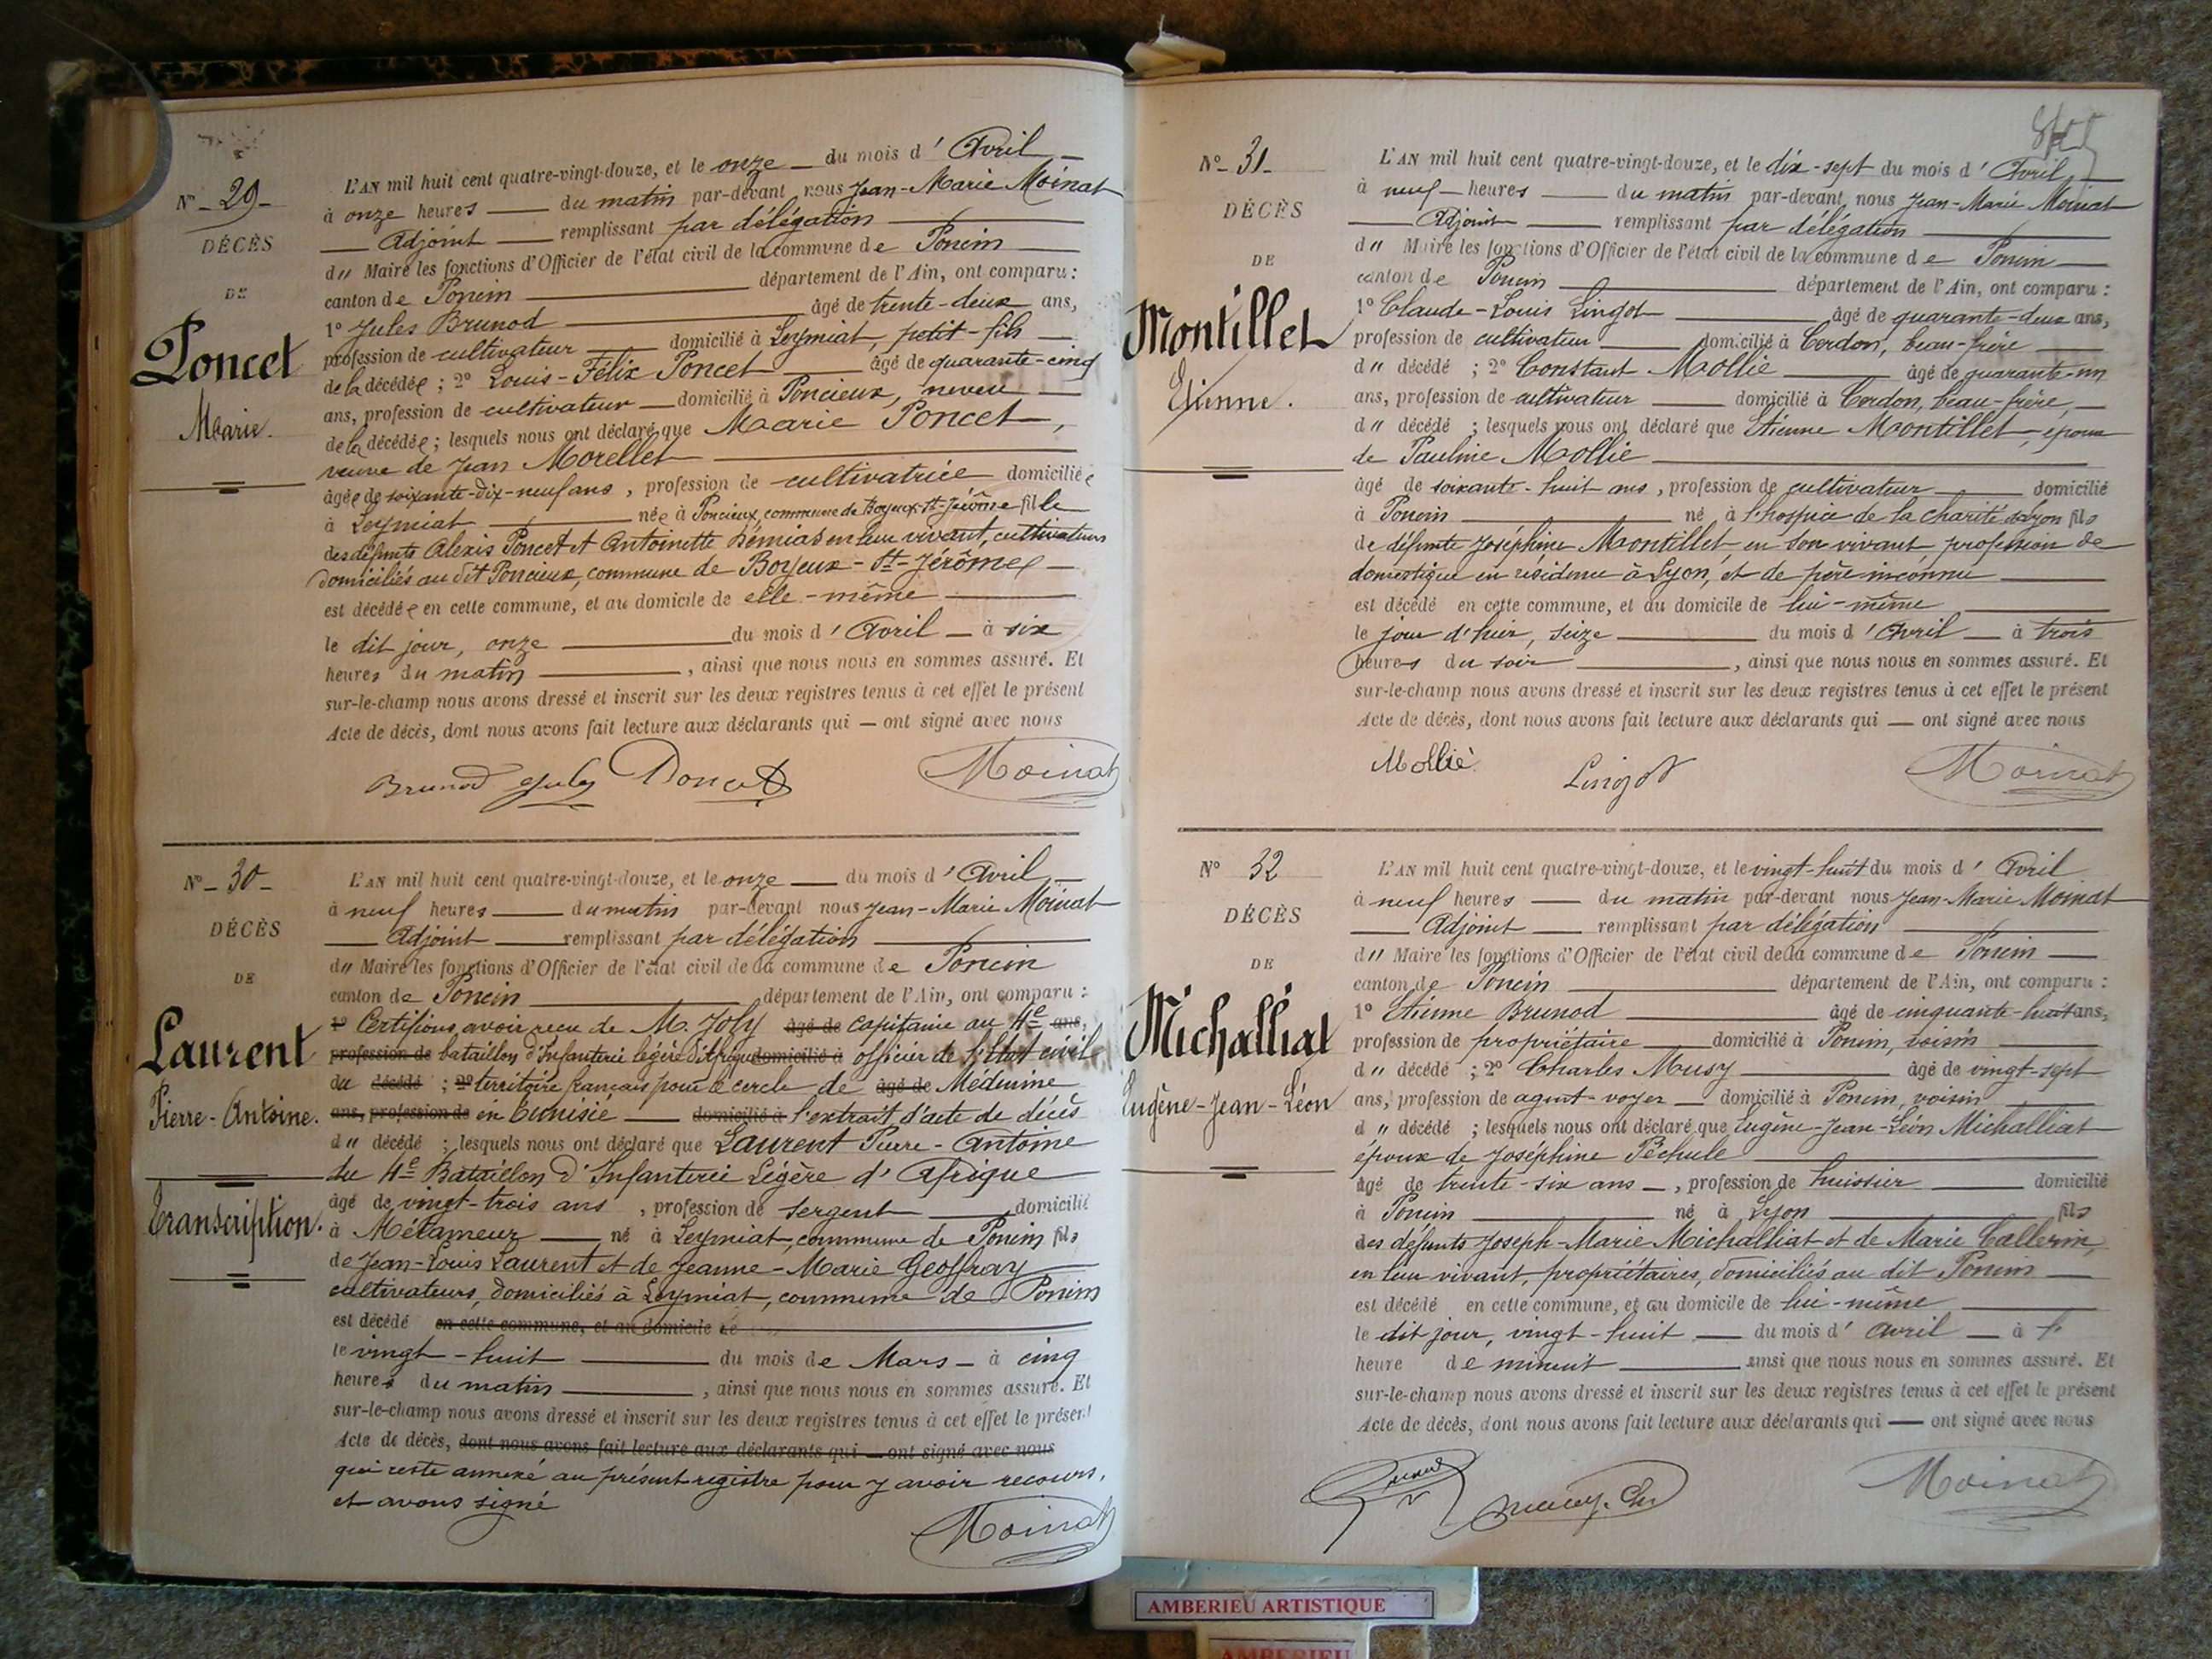 Nº - 29 -
DÉCÈS
DE
Poncet
Marie.
L'AN mil huit cent quatre-vingt-douze, et le onze du mois d'Avril
à onze heures du matin par-devant nous Jean-Marie Moinat
Adjoint remplissant par délégation
d" Maire les fonctions d'Officier de l'état civil de la commune de Poncin
canton de Poncin département de l'Ain, ont comparu :
1º Jules Brunod âgé de trente-deux ans,
profession de cultivateur domicilié à Leymiat, petit-fils
de la décédée ; 2º Louis-Félix Poncet âgé de quarante-cinq
ans, profession de cultivateur domicilié à Poncieux, neveu
de la décédée ; lesquels nous ont déclaré que Marie Poncet,
veuve de Jean Morellet
âgée de soixante-dix-neuf ans, profession de cultivatrice domiciliée
à Leymiat née à Poncieux, commune de Boyeux-St-Jérôme fille
des défunts Alexis Poncet et Antoinette Démias en leur vivant, cultivateurs
domiciliés au dit Poncieux, commune de Boyeux-St-Jérôme
est décédée en cette commune, et au domicile de elle-même
le dit jour, onze du mois d'Avril à six
heures du matin, ainsi que nous nous en sommes assuré. Et
sur-le-champ nous avons dressé et inscrit sur les deux registres tenus à cet effet le présent
Acte de décès, dont nous avons fait lecture aux déclarants qui — ont signé avec nous
Brunod Jules Poncet Moinat
Nº - 30 -
DÉCÈS
DE
Laurent
Pierre-Antoine.
Transcription.
L'AN mil huit cent quatre-vingt-douze, et le onze du mois d'Avril
à neuf heures du matin par-devant nous Jean-Marie Moinat
Adjoint remplissant par délégation
d" Maire les fonctions d'Officier de l'état civil de la commune de Poncin
canton de Poncin département de l'Ain, ont comparu :
1º Certifions avoir reçu de M. Joly âgé de capitaine au 4e ans,
profession de bataillon d'Infanterie légère d'Afrique domicilié à officier de l'état civil
du décédé ; 2º territoire français pour le cercle de âgé de Médenine
ans, profession de en Tunisie domicilié à l'extrait d'acte de décès
d" décédé ; lesquels nous ont déclaré que Laurent Pierre-Antoine
du 4e Bataillon d'Infanterie Légère d'Afrique
âgé de vingt-trois ans, profession de sergent domicilié
à Métameur né à Leymiat, commune de Poncin fils
de Jean-Louis Laurent et de Jeanne-Marie Geoffray
cultivateurs, domiciliés à Leymiat, commune de Poncin
est décédé en cette commune, et au domicile de
le vingt-huit du mois de Mars à cinq
heures du matin, ainsi que nous nous en sommes assuré. Et
sur-le-champ nous avons dressé et inscrit sur les deux registres tenus à cet effet le présent
Acte de décès, dont nous avons fait lecture aux déclarants qui — ont signé avec nous
qui reste annexé au présent registre pour y avoir recours,
et avons signé
Moinat
Nº - 31 -
DÉCÈS
DE
Montillet
Etienne.
L'AN mil huit cent quatre-vingt-douze, et le dix-sept du mois d'Avril,
à neuf heures du matin par-devant nous Jean-Marie Moinat
Adjoint remplissant par délégation
d" Maire les fonctions d'Officier de l'état civil de la commune de Poncin
canton de Poncin département de l'Ain, ont comparu :
1º Claude-Louis Lingot âgé de quarante-deux ans,
profession de cultivateur domicilié à Cerdon, beau-frère
d" décédé ; 2º Constant Mollie âgé de quarante-un
ans, profession de cultivateur domicilié à Cerdon, beau-frère,
d" décédé ; lesquels nous ont déclaré que Étienne Montillet, époux
de Pauline Mollie
âgé de soixante-huit ans, profession de cultivateur domicilié
à Poncin né à l'hospice de la charité Lyon fils
de défunte Joséphine Montillet en son vivant profession de
domestique en résidence à Lyon, et de père inconnu
est décédé en cette commune, et au domicile de lui-même
le jour d'hier, seize du mois d'Avril à trois
heures du soir, ainsi que nous nous en sommes assuré. Et
sur-le-champ nous avons dressé et inscrit sur les deux registres tenus à cet effet le présent
Acte de décès, dont nous avons fait lecture aux déclarants qui — ont signé avec nous
Mollié Lingot Moinat
Nº 32
DÉCÈS
DE
Michalliat
Eugène-Jean-Léon
L'AN mil huit cent quatre-vingt-douze, et le vingt-huit du mois d'Avril
à neuf heures du matin par-devant nous Jean-Marie Moinat
Adjoint remplissant par délégation
d" Maire les fonctions d'Officier de l'état civil de la commune de Poncin
canton de Poncin département de l'Ain, ont comparu :
1º Etienne Brunod âgé de cinquante-huit ans,
profession de propriétaire domicilié à Poncin, voisin
d" décédé ; 2º Charles Musy âgé de vingt-sept
ans, profession de agent-voyer domicilié à Poncin, voisin
d" décédé ; lesquels nous ont déclaré que Eugène-Jean-Léon Michalliat
époux de Joséphine Péchule
âgé de trente-six ans, profession de huissier domicilié
à Poncin né à Lyon fils
des défunts Joseph-Marie Michalliat et de Marie Callerin
en leur vivant, propriétaires, domiciliés au dit Poncin
est décédé en cette commune, et au domicile de lui-même
le dit jour, vingt-huit du mois d'avril à
heure de minuit ainsi que nous nous en sommes assuré. Et
sur-le-champ nous avons dressé et inscrit sur les deux registres tenus à cet effet le présent
Acte de décès, dont nous avons fait lecture aux déclarants qui — ont signé avec nous
Musy. Ch Moinat
AMBERIEU ARTISTIQUE
AMBERIEU